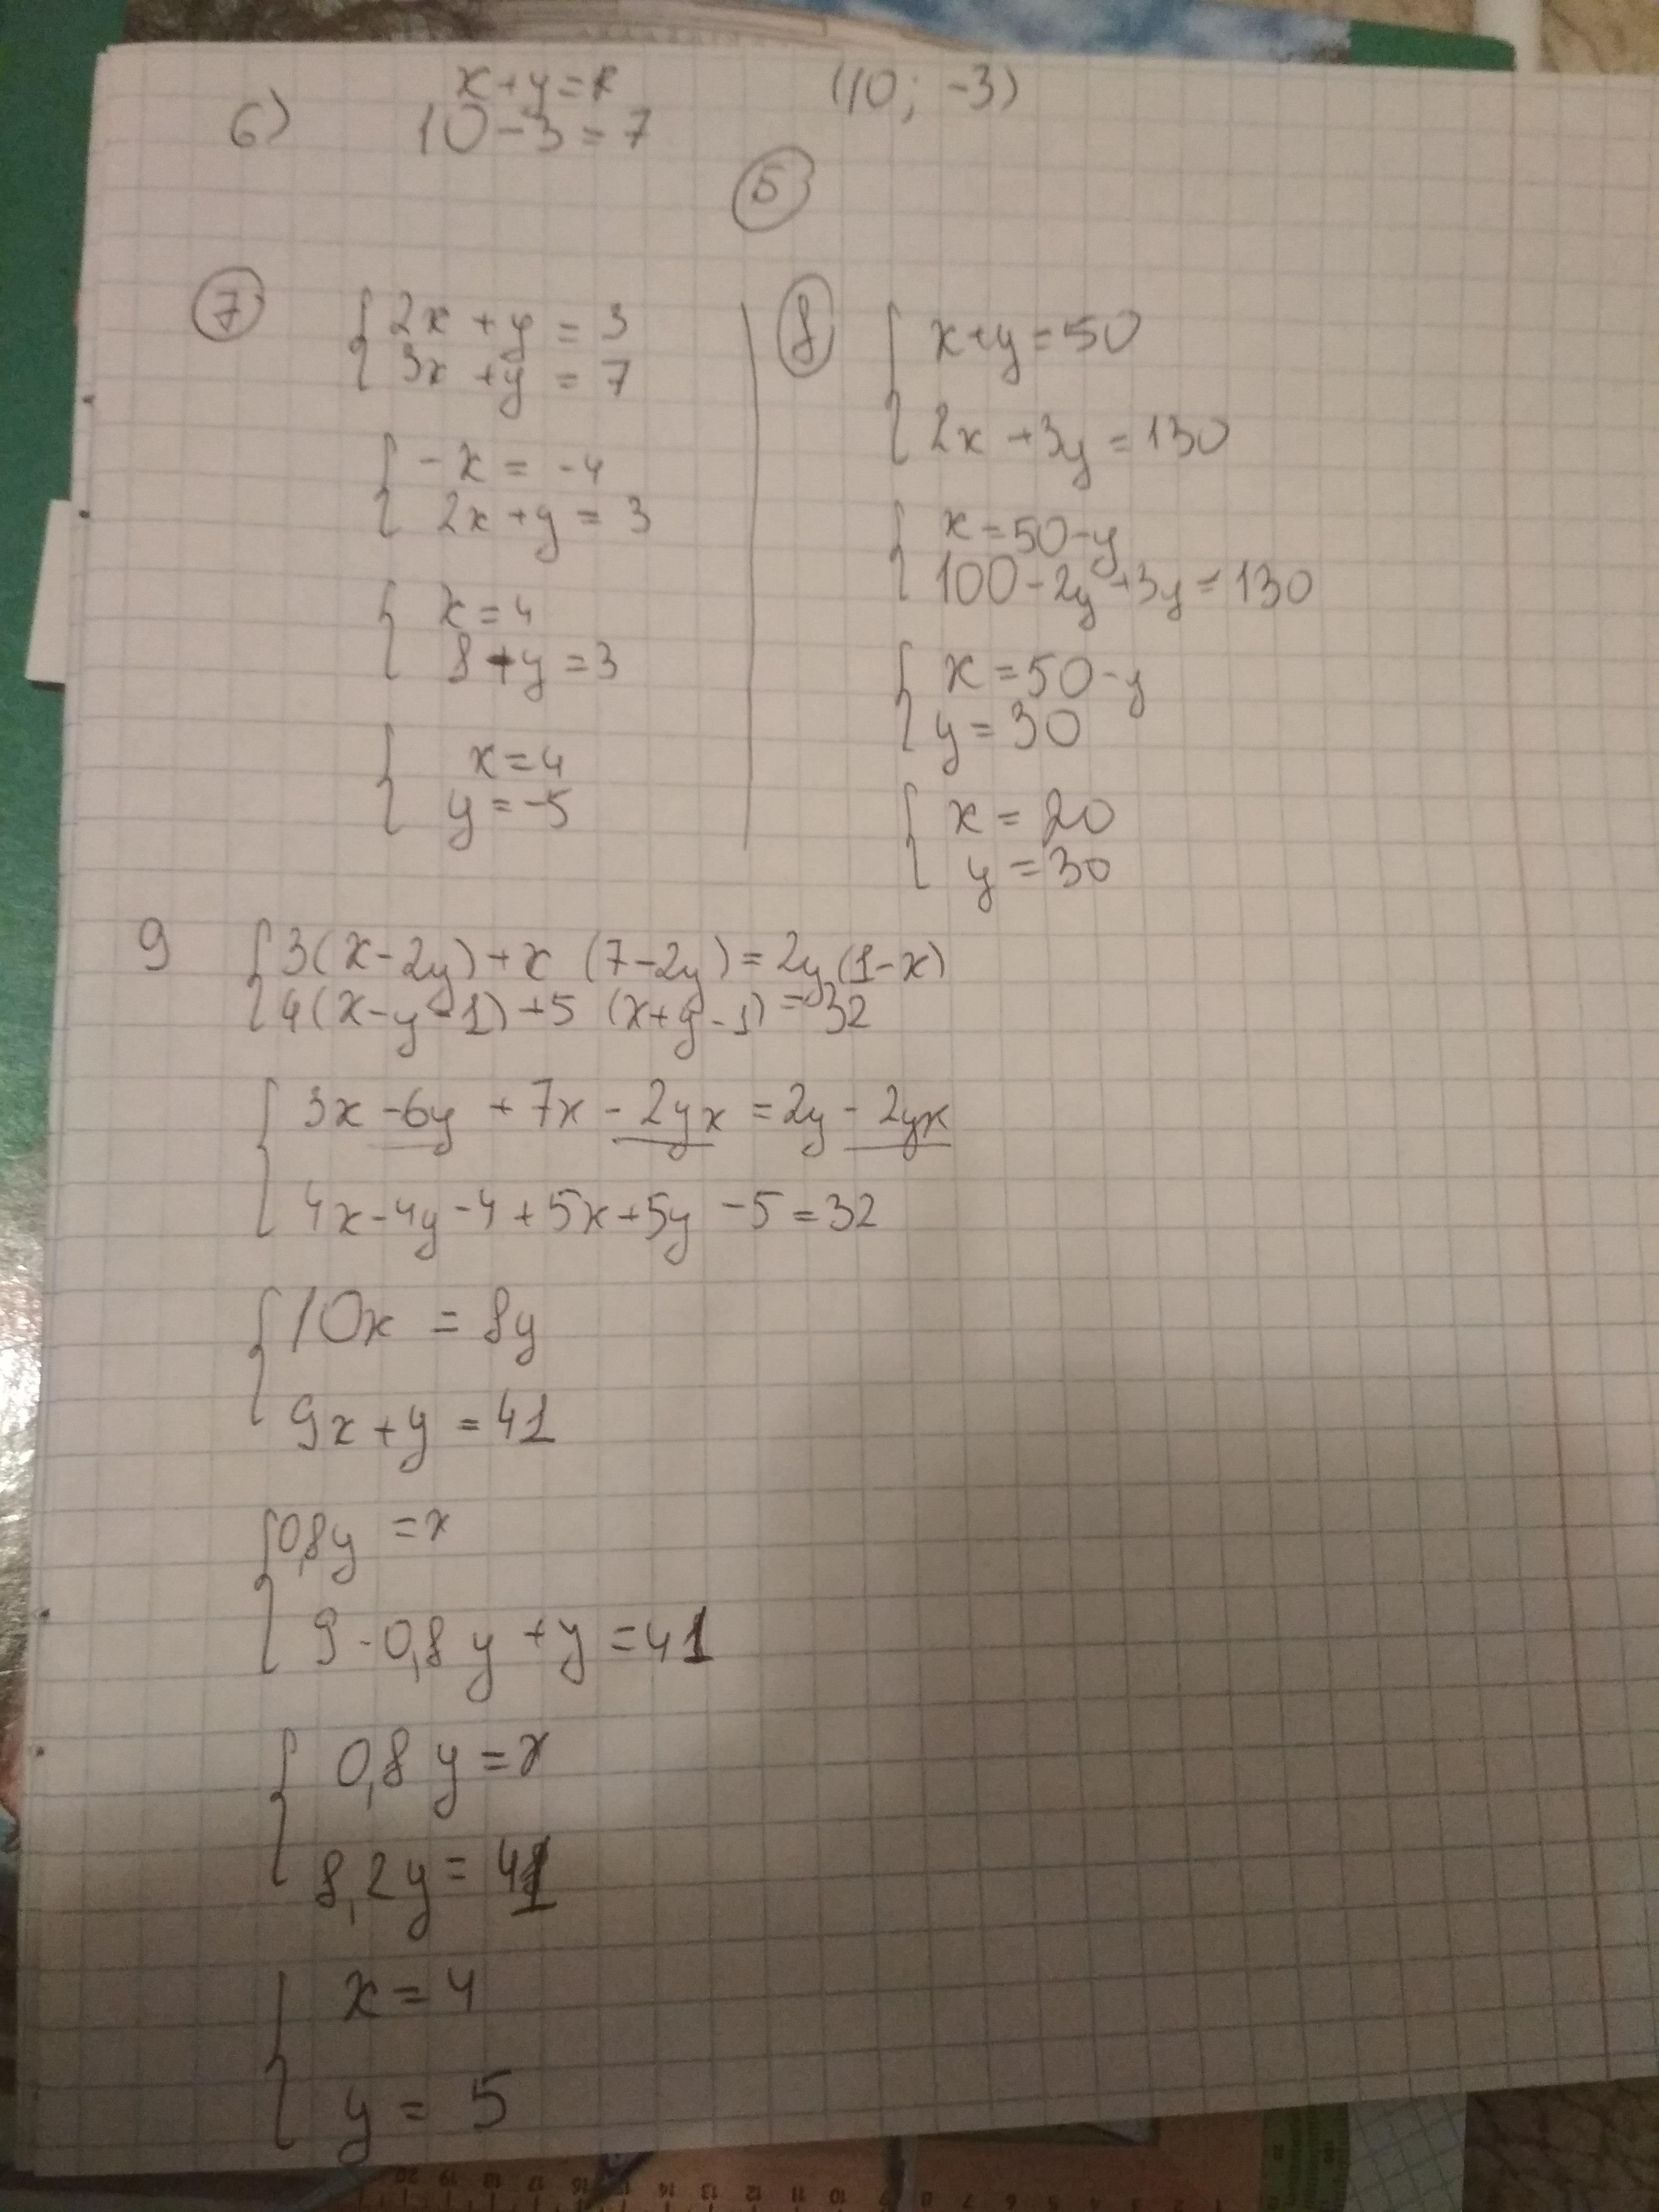 x+y=R (10; -3)
6) 10-3=7
5
7
2x+y=3
3x+y=7
-x=-4
2x+y=3
x=4
8+y=3
x=4
y=-5
8
x+y=50
2x+3y=130
x=50-y
100-2y+3y=130
x=50-y
y=30
x=20
y=30
9 3(x-2y)+x(7-2y)=2y(1-x)
4(x-y-1)+5(x+y-1)=32
3x-6y+7x-2yx=2y-2yx
4x-4y-4+5x+5y-5=32
10x=8y
9x+y=41
0,8y=x
9·0,8y+y=41
0,8y=x
8,2y=41
x=4
y=5
20 19 18 17 16 15 14 13 12 11 10 9 8 7 6 5 4 3 2 1